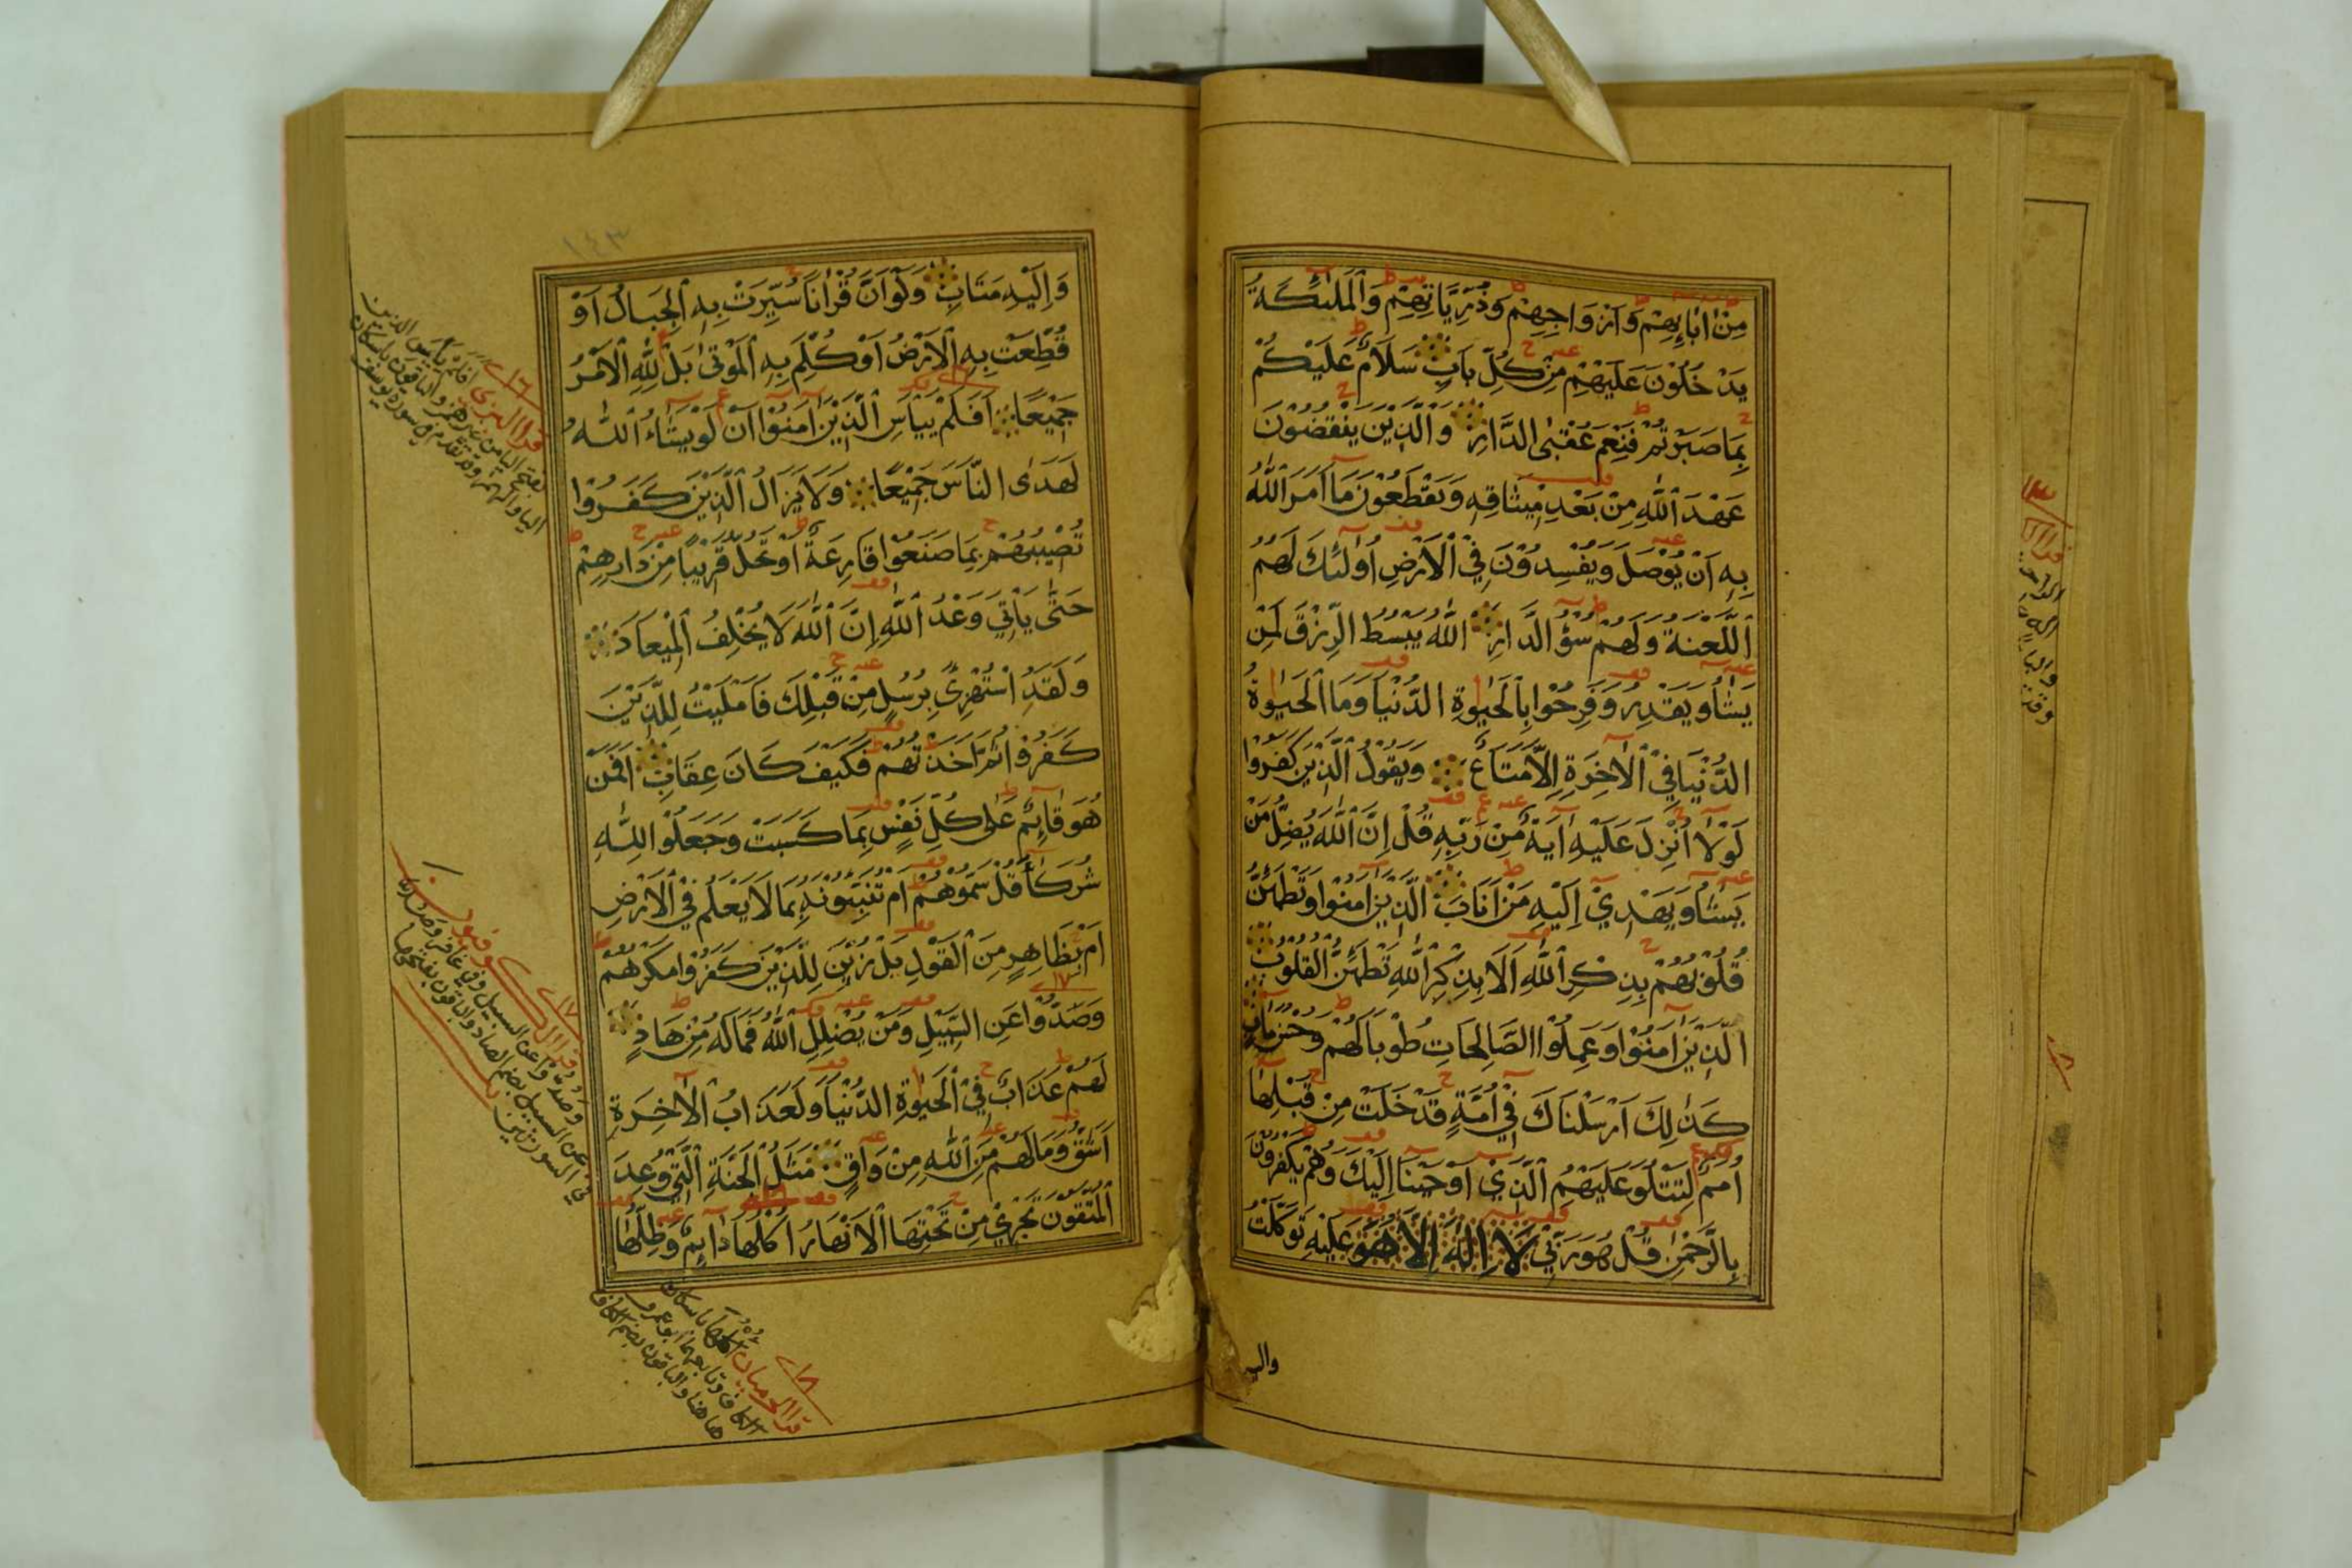 مِنْ اٰبَائِهِمْ وَاَزْوَاجِهِمْ وَذُرِّيَّاتِهِمْ وَالْمَلٰئِكَةُ
يَدْخُلُوْنَ عَلَيْهِمْ مِنْ كُلِّ بَابٍ سَلَامٌ عَلَيْكُمْ
بِمَا صَبَرْتُمْ فَنِعْمَ عُقْبَى الدَّارِ وَالَّذِيْنَ يَنْقُضُوْنَ
عَهْدَ اللّٰهِ مِنْ بَعْدِ مِيْثَاقِهِ وَيَقْطَعُوْنَ مَا اَمَرَ اللّٰهُ
بِهِ اَنْ يُوْصَلَ وَيُفْسِدُوْنَ فِي الْاَرْضِ اُولٰئِكَ لَهُمُ
اللَّعْنَةُ وَلَهُمْ سُؤُ الدَّارِ اللّٰهُ يَبْسُطُ الرِّزْقَ لِمَنْ
يَشَاُ وَيَقْدِرُ وَفَرِحُوْا بِالْحَيٰوةِ الدُّنْيَا وَمَا الْحَيٰوةُ
الدُّنْيَا فِي الْاٰخِرَةِ اِلَّا مَتَاعٌ وَيَقُوْلُ الَّذِيْنَ كَفَرُوْا
لَوْلَا اُنْزِلَ عَلَيْهِ اٰيَةٌ مِنْ رَبِّهِ قُلْ اِنَّ اللّٰهَ يُضِلُّ مَنْ
يَشَاُ وَيَهْدِيْ اِلَيْهِ مَنْ اَنَابَ الَّذِيْنَ اٰمَنُوْا وَتَطْمَئِنُّ
قُلُوْبُهُمْ بِذِكْرِ اللّٰهِ اَلَا بِذِكْرِ اللّٰهِ تَطْمَئِنُّ الْقُلُوْبُ
الَّذِيْنَ اٰمَنُوْا وَعَمِلُوا الصَّالِحَاتِ طُوْبَا لَهُمْ وَحُسْنُ مَاٰبٍ
كَذٰلِكَ اَرْسَلْنَاكَ فِي اُمَّةٍ قَدْ خَلَتْ مِنْ قَبْلِهَا
اُمَمٌ لِتَتْلُوَ عَلَيْهِمُ الَّذِيْ اَوْحَيْنَا اِلَيْكَ وَهُمْ يَكْفُرُوْنَ
بِالرَّحْمٰنِ قُلْ هُوَ رَبِّيْ لَا اِلٰهَ اِلَّا هُوَ عَلَيْهِ تَوَكَّلْتُ
والي
١٤٣
وَاِلَيْهِ مَتَابِ وَلَوْ اَنَّ قُرْاٰنًا سُيِّرَتْ بِهِ الْجِبَالُ اَوْ
قُطِّعَتْ بِهِ الْاَرْضُ اَوْ كُلِّمَ بِهِ الْمَوْتٰى بَلْ لِلّٰهِ الْاَمْرُ
جَمِيْعًا اَفَلَمْ يَيْاَسِ الَّذِيْنَ اٰمَنُوْا اَنْ لَوْ يَشَاءُ اللّٰهُ
لَهَدَى النَّاسَ جَمِيْعًا وَلَا يَزَالُ الَّذِيْنَ كَفَرُوْا
تُصِيْبُهُمْ بِمَا صَنَعُوْا قَارِعَةٌ اَوْ تَحُلُّ قَرِيْبًا مِنْ دَارِهِمْ
حَتّٰى يَاْتِيَ وَعْدُ اللّٰهِ اِنَّ اللّٰهَ لَا يُخْلِفُ الْمِيْعَادَ
وَلَقَدِ اسْتُهْزِئَ بِرُسُلٍ مِنْ قَبْلِكَ فَاَمْلَيْتُ لِلَّذِيْنَ
كَفَرُوْا ثُمَّ اَخَذْتُهُمْ فَكَيْفَ كَانَ عِقَابِ اَفَمَنْ
هُوَ قَائِمٌ عَلٰى كُلِّ نَفْسٍ بِمَا كَسَبَتْ وَجَعَلُوْا لِلّٰهِ
شُرَكَاءَ قُلْ سَمُّوْهُمْ اَمْ تُنَبِّئُوْنَهُ بِمَا لَا يَعْلَمُ فِي الْاَرْضِ
اَمْ بِظَاهِرٍ مِنَ الْقَوْلِ بَلْ زُيِّنَ لِلَّذِيْنَ كَفَرُوْا مَكْرُهُمْ
وَصُدُّوْا عَنِ السَّبِيْلِ وَمَنْ يُضْلِلِ اللّٰهُ فَمَا لَهُ مِنْ هَادٍ
لَهُمْ عَذَابٌ فِي الْحَيٰوةِ الدُّنْيَا وَلَعَذَابُ الْاٰخِرَةِ
اَشَقُّ وَمَا لَهُمْ مِنَ اللّٰهِ مِنْ وَاقٍ مَثَلُ الْجَنَّةِ الَّتِيْ وُعِدَ
الْمُتَّقُوْنَ تَجْرِيْ مِنْ تَحْتِهَا الْاَنْهَارُ اُكُلُهَا دَائِمٌ وَظِلُّهَا
١٦
قرا البزي افلم يايس الذين
بفتح اليا من غير همز والباقون باسكان
اليا والهمز وقد تقدم في سورة يوسف
١٧
وصدوا عن السبيل وفي غافر وصد
عن السبيل بضم الصاد والباقون بفتحها
في السورتين
١٨
قرا الحرميان اكلها باسكان
الكاف وتابعهما ابو عمرو
هاهنا والباقون بضم الكاف